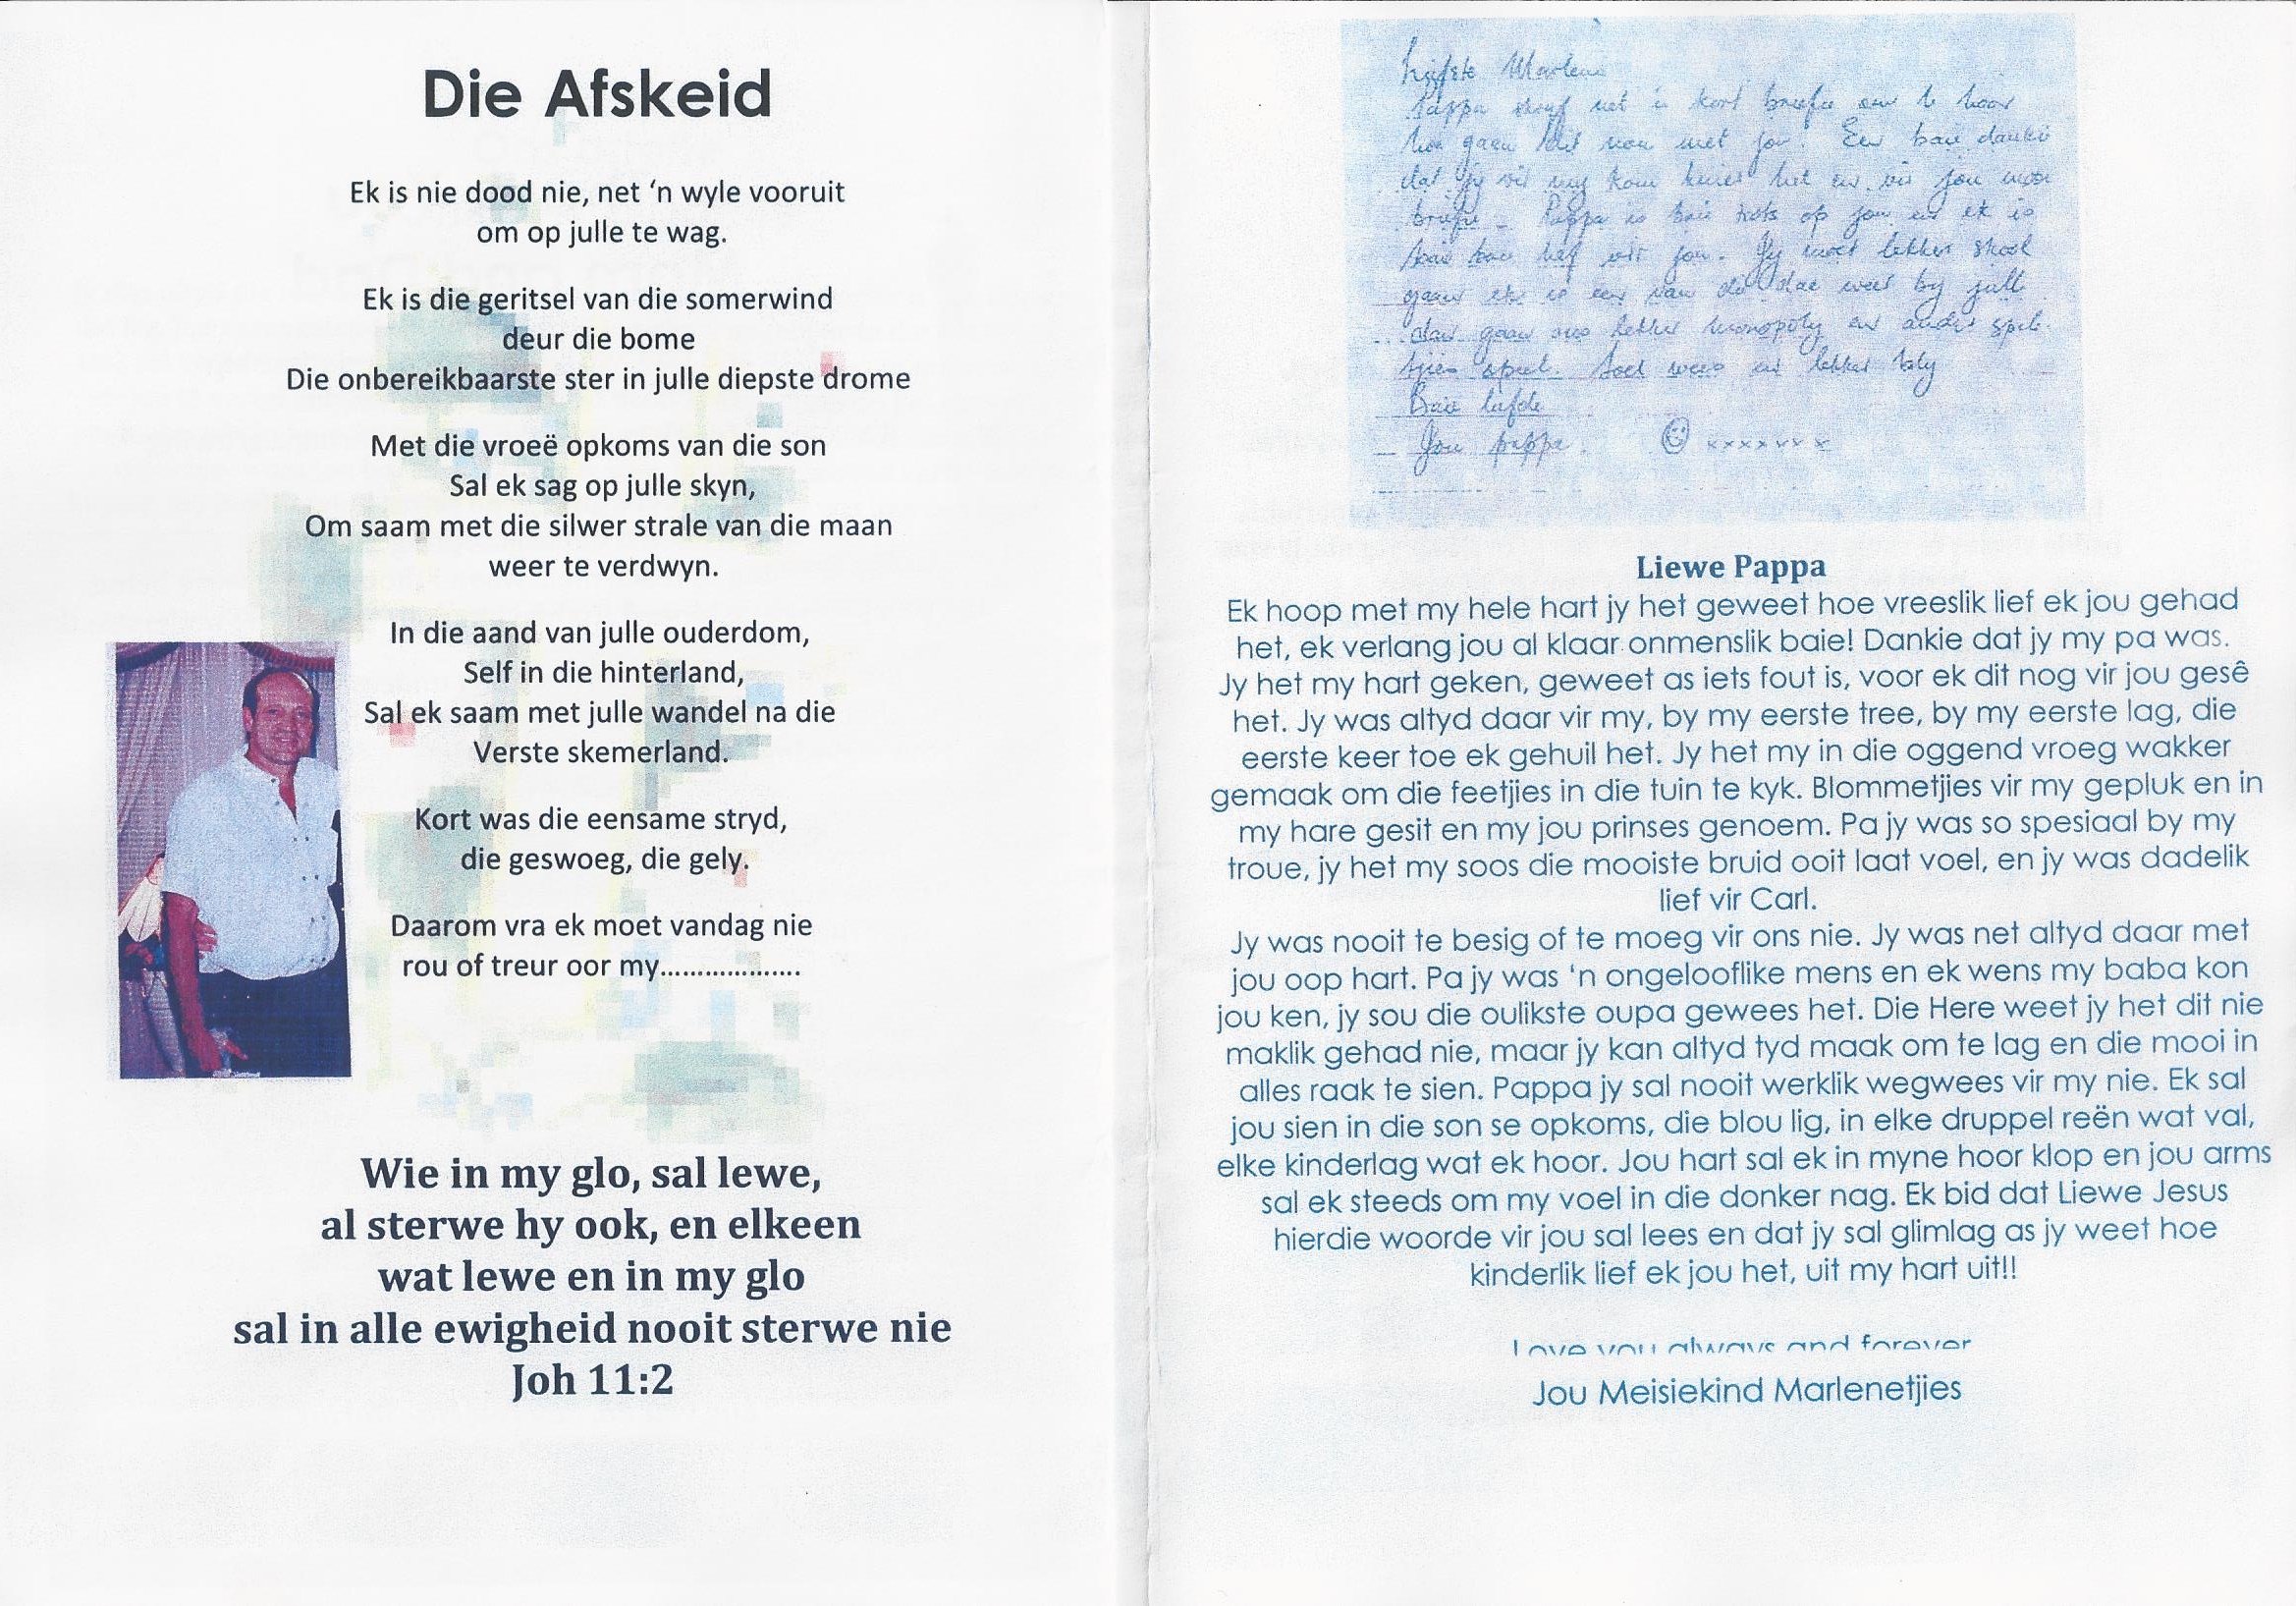 Die Afskeid
Ek is nie dood nie, net ‘n wyle vooruit
om op julle te wag.
Ek is die geritsel van die somerwind
deur die bome
Die onbereikbaarste ster in julle diepste drome
Met die vroeë opkoms van die son
Sal ek sag op julle skyn,
Om saam met die silwer strale van die maan
weer te verdwyn.
In die aand van julle ouderdom,
Self in die hinterland,
Sal ek saam met julle wandel na die
Verste skemerland.
Kort was die eensame stryd,
die geswoeg, die gely.
Daarom vra ek moet vandag nie
rou of treur oor my...................
Wie in my glo, sal lewe,
al sterwe hy ook, en elkeen
wat lewe en in my glo
sal in alle ewigheid nooit sterwe nie
Joh 11:2
Liefste Marlene
Pappa skryf net 'n kort briefie om te hoor
hoe gaan dit nou met jou. En baie dankie
dat jy vir my kom kuier het en vir jou mooi
briefie. Pappa is baie trots op jou en ek is
baie baie lief vir jou. Jy moet lekker skool
gaan ek is een van die dae weer by julle
dan gaan ons lekker monopoly en ander spele-
tjies speel. Soet wees en lekker bly
Baie liefde
Jou pappa. xxxxxxx
Liewe Pappa
Ek hoop met my hele hart jy het geweet hoe vreeslik lief ek jou gehad
het, ek verlang jou al klaar onmenslik baie! Dankie dat jy my pa was.
Jy het my hart geken, geweet as iets fout is, voor ek dit nog vir jou gesê
het. Jy was altyd daar vir my, by my eerste tree, by my eerste lag, die
eerste keer toe ek gehuil het. Jy het my in die oggend vroeg wakker
gemaak om die feetjies in die tuin te kyk. Blommetjies vir my gepluk en in
my hare gesit en my jou prinses genoem. Pa jy was so spesiaal by my
troue, jy het my soos die mooiste bruid ooit laat voel, en jy was dadelik
lief vir Carl.
Jy was nooit te besig of te moeg vir ons nie. Jy was net altyd daar met
jou oop hart. Pa jy was ‘n ongelooflike mens en ek wens my baba kon
jou ken, jy sou die oulikste oupa gewees het. Die Here weet jy het dit nie
maklik gehad nie, maar jy kan altyd tyd maak om te lag en die mooi in
alles raak te sien. Pappa jy sal nooit werklik wegwees vir my nie. Ek sal
jou sien in die son se opkoms, die blou lig, in elke druppel reën wat val,
elke kinderlag wat ek hoor. Jou hart sal ek in myne hoor klop en jou arms
sal ek steeds om my voel in die donker nag. Ek bid dat Liewe Jesus
hierdie woorde vir jou sal lees en dat jy sal glimlag as jy weet hoe
kinderlik lief ek jou het, uit my hart uit!!
Love you always and forever
Jou Meisiekind Marlenetjies